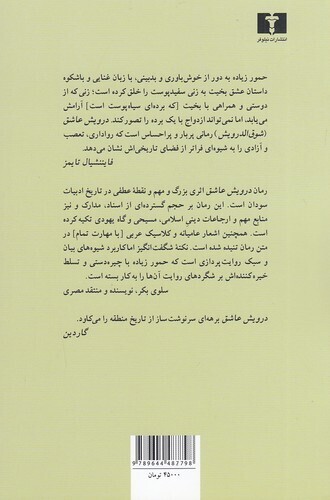 انتشارات نیلوفر
حمور زیاده به دور از خوش‌باوری و بدبینی، با زبان غنایی و باشکوه
داستان عشق بخیت به زنی سفیدپوست را خلق کرده است؛ زنی که از
دوستی و همراهی با بخیت [که برده‌ای سیاه‌پوست است] آرامش
می‌یابد، اما نمی‌تواند ازدواج با یک برده را تصور کند. درویش عاشق
(شوق‌الدرویش) رمانی پربار و پراحساس است که رواداری، تعصب
و آزادی را به شیوه‌ای فراتر از فضای تاریخی‌اش نشان می‌دهد.
فایننشیال تایمز
رمان درویش عاشق اثری بزرگ و مهم و نقطهٔ عطفی در تاریخ ادبیات
سودان است. این رمان بر حجم گسترده‌ای از اسناد، مدارک و نیز
منابع مهم و ارجاعات دینی اسلامی، مسیحی و گاه یهودی تکیه کرده
است. همچنین اشعار عامیانه و کلاسیک عربی [با مهارت تمام] در
متن رمان تنیده شده است. نکتهٔ شگفت‌انگیز اما کاربرد شیوه‌های بیان
و سبک روایت‌پردازی است که حمور زیاده با چیره‌دستی و تسلط
خیره‌کننده‌اش بر شگردهای روایت آن‌ها را به کار بسته است.
سلوی بکر، نویسنده و منتقد مصری
درویش عاشق برهه‌ای سرنوشت‌ساز از تاریخ منطقه را می‌کاود.
گاردین
9 789644 487798
۴۵۰۰۰ تومان